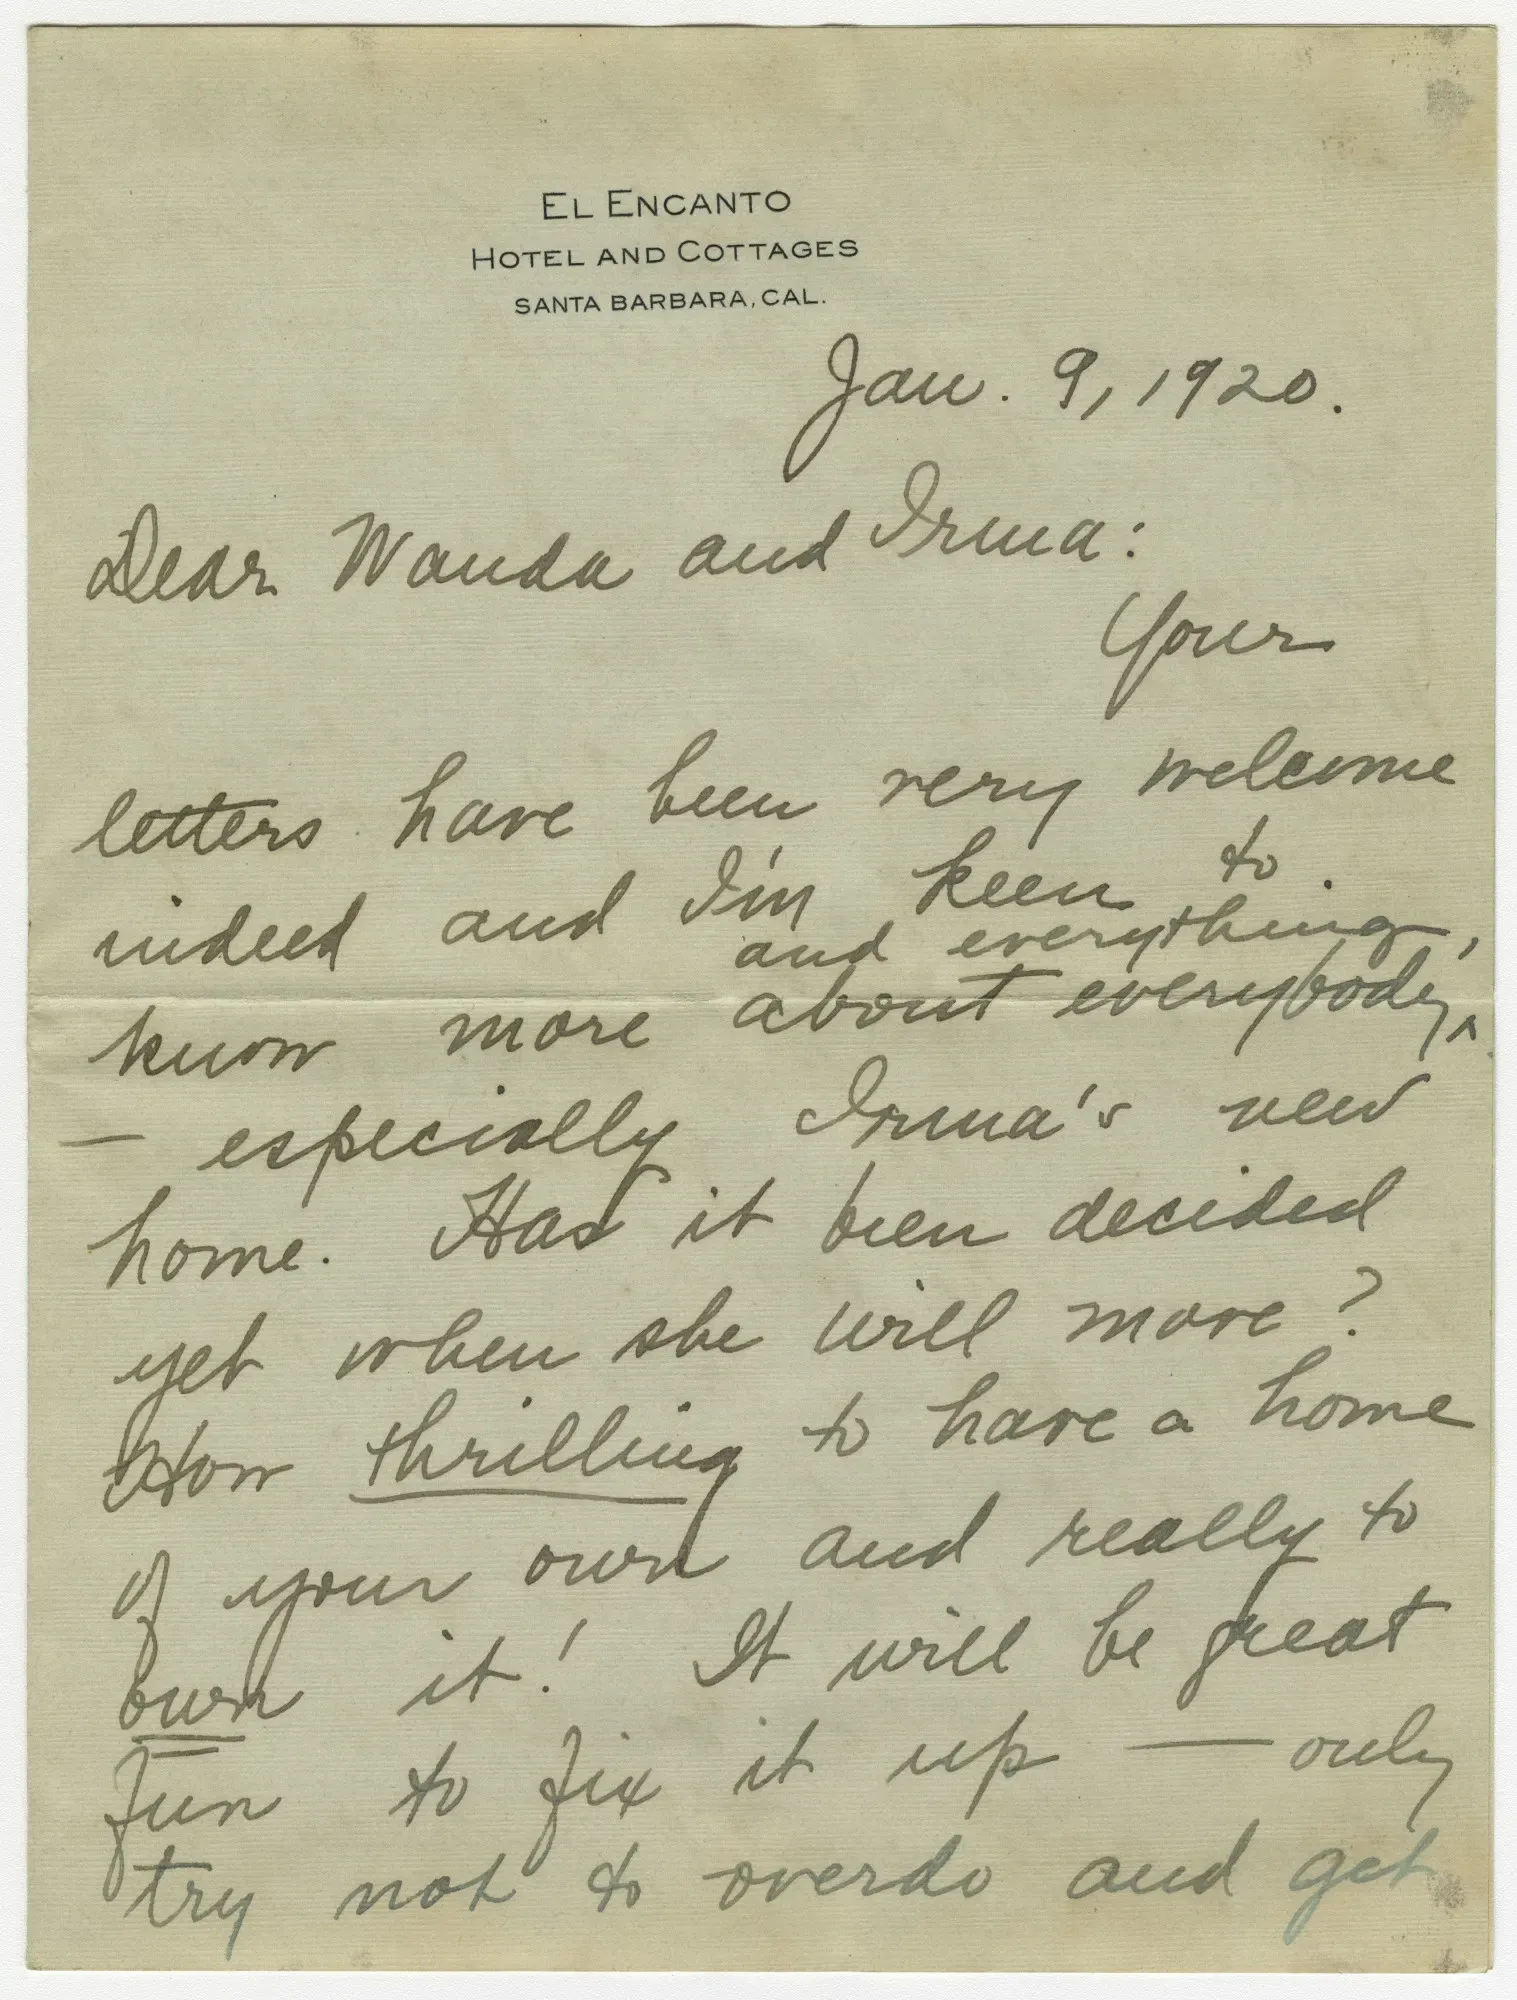 EL ENCANTO
HOTEL AND COTTAGES
SANTA BARBARA, CAL.
Jan. 9, 1920.
Dear Wanda and Irma:
Your
letters have been very welcome
indeed and I'm keen to
and everything,
know more about everybody^
— especially Irma's new
home. Has it been decided
yet when she will move?
How thrilling to have a home
of your own and really to
own it! It will be great
fun to fix it up — only
try not to overdo and get